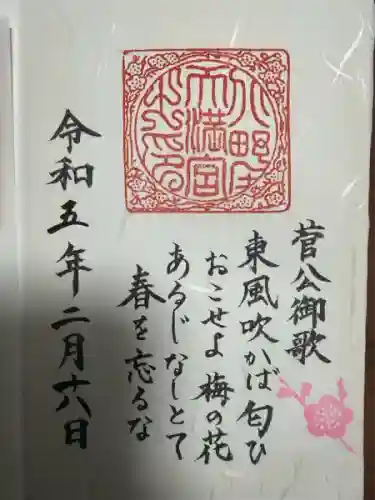 菅公御歌
東風吹かば匂ひ
おこせよ梅の花
あるじなしとて
春を忘るな
令和五年二月十八日